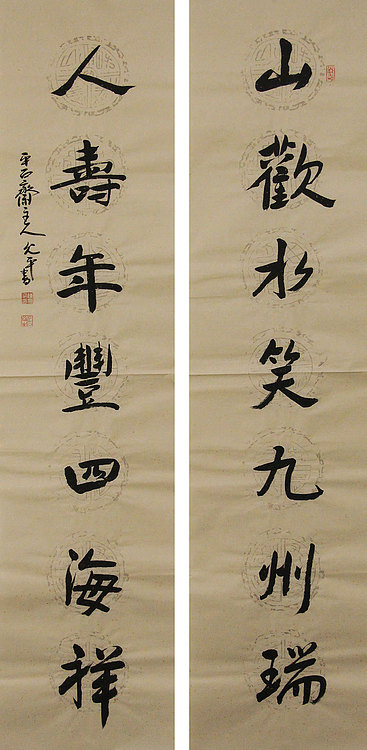 山歡水笑九州瑞
人壽年豐四海祥
平正齋主人允平書